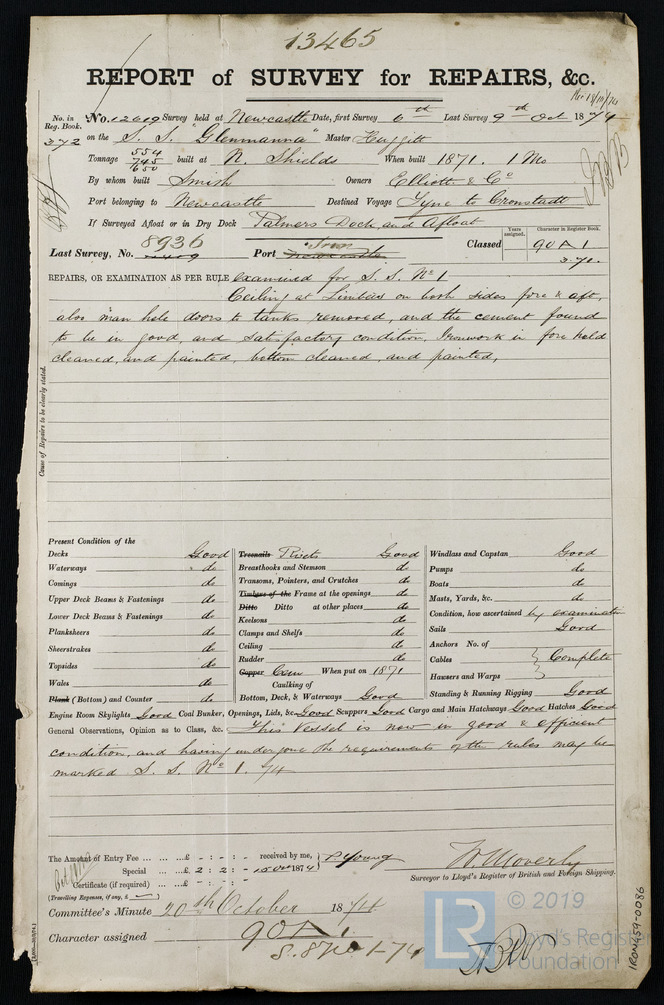 13465
REPORT of SURVEY for REPAIRS, &c.
No. in Reg. Book.
372
No. 12609 Survey held at Newcastle Date, first Survey 6th Last Survey 9th Oct 1874
on the S. S. "Glenmanna" Master
Tonnage 554 745 650 built at N. Shields When built 1871. 1 Mo
By whom built Smith Owners Elliott & Co
Port belonging to Newcastle Destined Voyage Tyne to Cronstadt
If Surveyed Afloat or in Dry Dock Palmers Dock and Afloat
Last Survey, No. 8936 Port Classed
Years assigned.
Character in Register Book.
90 A 1
3.71.
REPAIRS, OR EXAMINATION AS PER RULE examined for S. S. No 1
Ceiling at Limbers on both sides fore & aft,
also man hole doors to tanks removed, and the cement found
to be in good and satisfactory condition, Ironwork in fore hold
cleaned, and painted, bottom cleaned and painted,
Cause of Repairs to be clearly stated.
Present Condition of the
Decks Good
Waterways do
Comings do
Upper Deck Beams & Fastenings do
Lower Deck Beams & Fastenings do
Planksheers do
Sheerstrakes do
Topsides do
Wales do
Plank (Bottom) and Counter do
Treenails Rivets Good
Breasthooks and Stemson do
Transoms, Pointers, and Crutches do
Timbers of the Frame at the openings do
Ditto Ditto at other places do
Keelsons do
Clamps and Shelfs do
Ceiling do
Rudder do
Copper When put on 1871
Caulking of
Bottom, Deck, & Waterways Good
Windlass and Capstan Good
Pumps do
Boats do
Masts, Yards, &c. do
Condition, how ascertained by examination
Sails Good
Anchors No. of
Cables Complete
Hawsers and Warps
Standing & Running Rigging Good
Engine Room Skylights Good Coal Bunker, Openings, Lids, &c. Good Scuppers Good Cargo and Main Hatchways Good Hatches Good
General Observations, Opinion as to Class, &c. This Vessel is now in good & efficient
condition, and having undergone the requirements of the rules may be
marked S. S. No 1. 74
The Amount of Entry Fee £ - : - : - received by me,
Special £ 2 : 2 : - 1874 P. Young
Certificate (if required) £ - : - : -
(Travelling Expenses, if any, £ )
W. Moverly
Surveyor to Lloyd's Register of British and Foreign Shipping.
Committee's Minute 20th October 1874
Character assigned 90 A 1.
S. S No 1-74
© 2019
LR
Lloyd's Register
Foundation
IRON459-0086